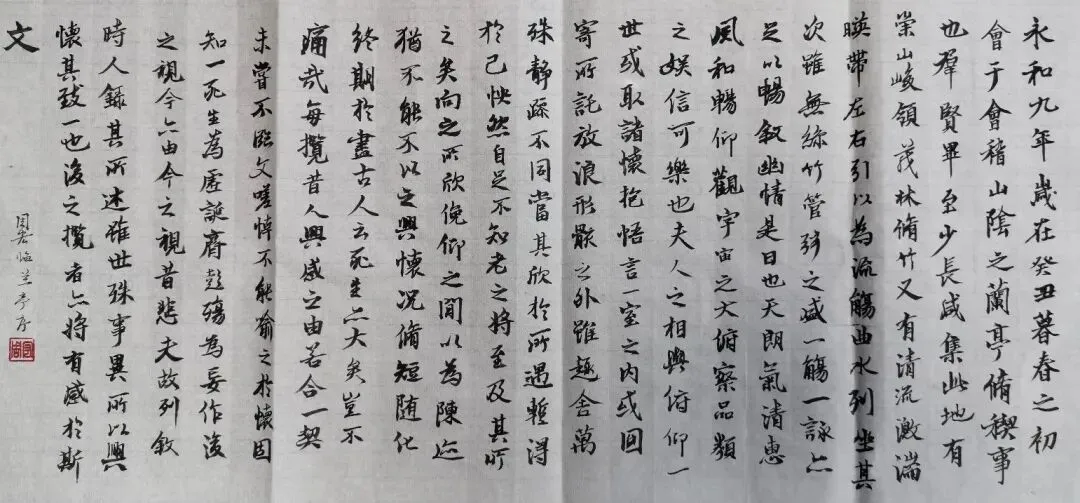 永和九年歲在癸丑暮春之初
會于會稽山陰之蘭亭脩稧事
也羣賢畢至少長咸集此地有
崇山峻領茂林脩竹又有清流激湍
暎帶左右引以為流觴曲水列坐其
次雖無絲竹管弦之盛一觴一詠亦
足以暢敘幽情是日也天朗氣清惠
風和暢仰觀宇宙之大俯察品類
之娛信可樂也夫人之相與俯仰一
世或取諸懷抱悟言一室之內或回
寄所託放浪形骸之外雖趣舍萬
殊靜躁不同當其欣於所遇蹔得
於己怏然自足不知老之將至及其所
之矣向之所欣俛仰之閒以為陳迹
猶不能不以之興懷況脩短随化
終期於盡古人云死生亦大矣豈不
痛哉每攬昔人興感之由若合一契
未嘗不臨文嗟悼不能喻之於懷固
知一死生為虛誕齊彭殤為妄作後
之視今亦由今之視昔悲夫故列敘
時人錄其所述雖世殊事異所以興
懷其致一也後之攬者亦將有感於斯
文
臨蘭亭序